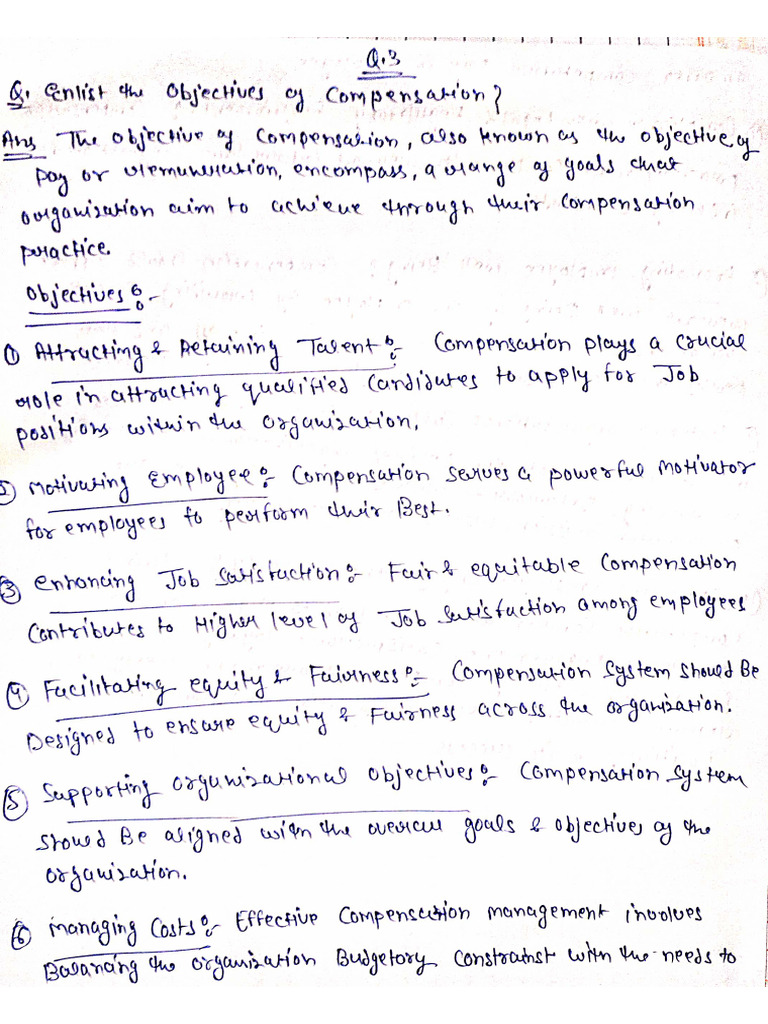 Q.3
Q. Enlist the Objectives of Compensation?
Ans The Objective of Compensation, also known as the objective of
pay or remuneration, encompass, a range of goals that
organization aim to achieve through their Compensation
practice.
Objectives :-
① Attracting & Retaining Talent :- Compensation plays a crucial
role in attracting qualified Candidates to apply for Job
positions within the organization.
② Motivating Employee :- Compensation serves a powerful motivator
for employees to perform their Best.
③ Enhancing Job Satisfaction :- Fair & equitable Compensation
Contributes to Higher level of Job Satisfaction among employees
④ Facilitating equity & Fairness :- Compensation System should Be
Designed to ensure equity & Fairness across the organization.
⑤ Supporting Organizational Objectives :- Compensation System
should Be aligned with the overall goals & objectives of the
organization.
⑥ Managing Costs :- Effective Compensation management involves
Balancing the organization Budgetory Constrainst with the needs to